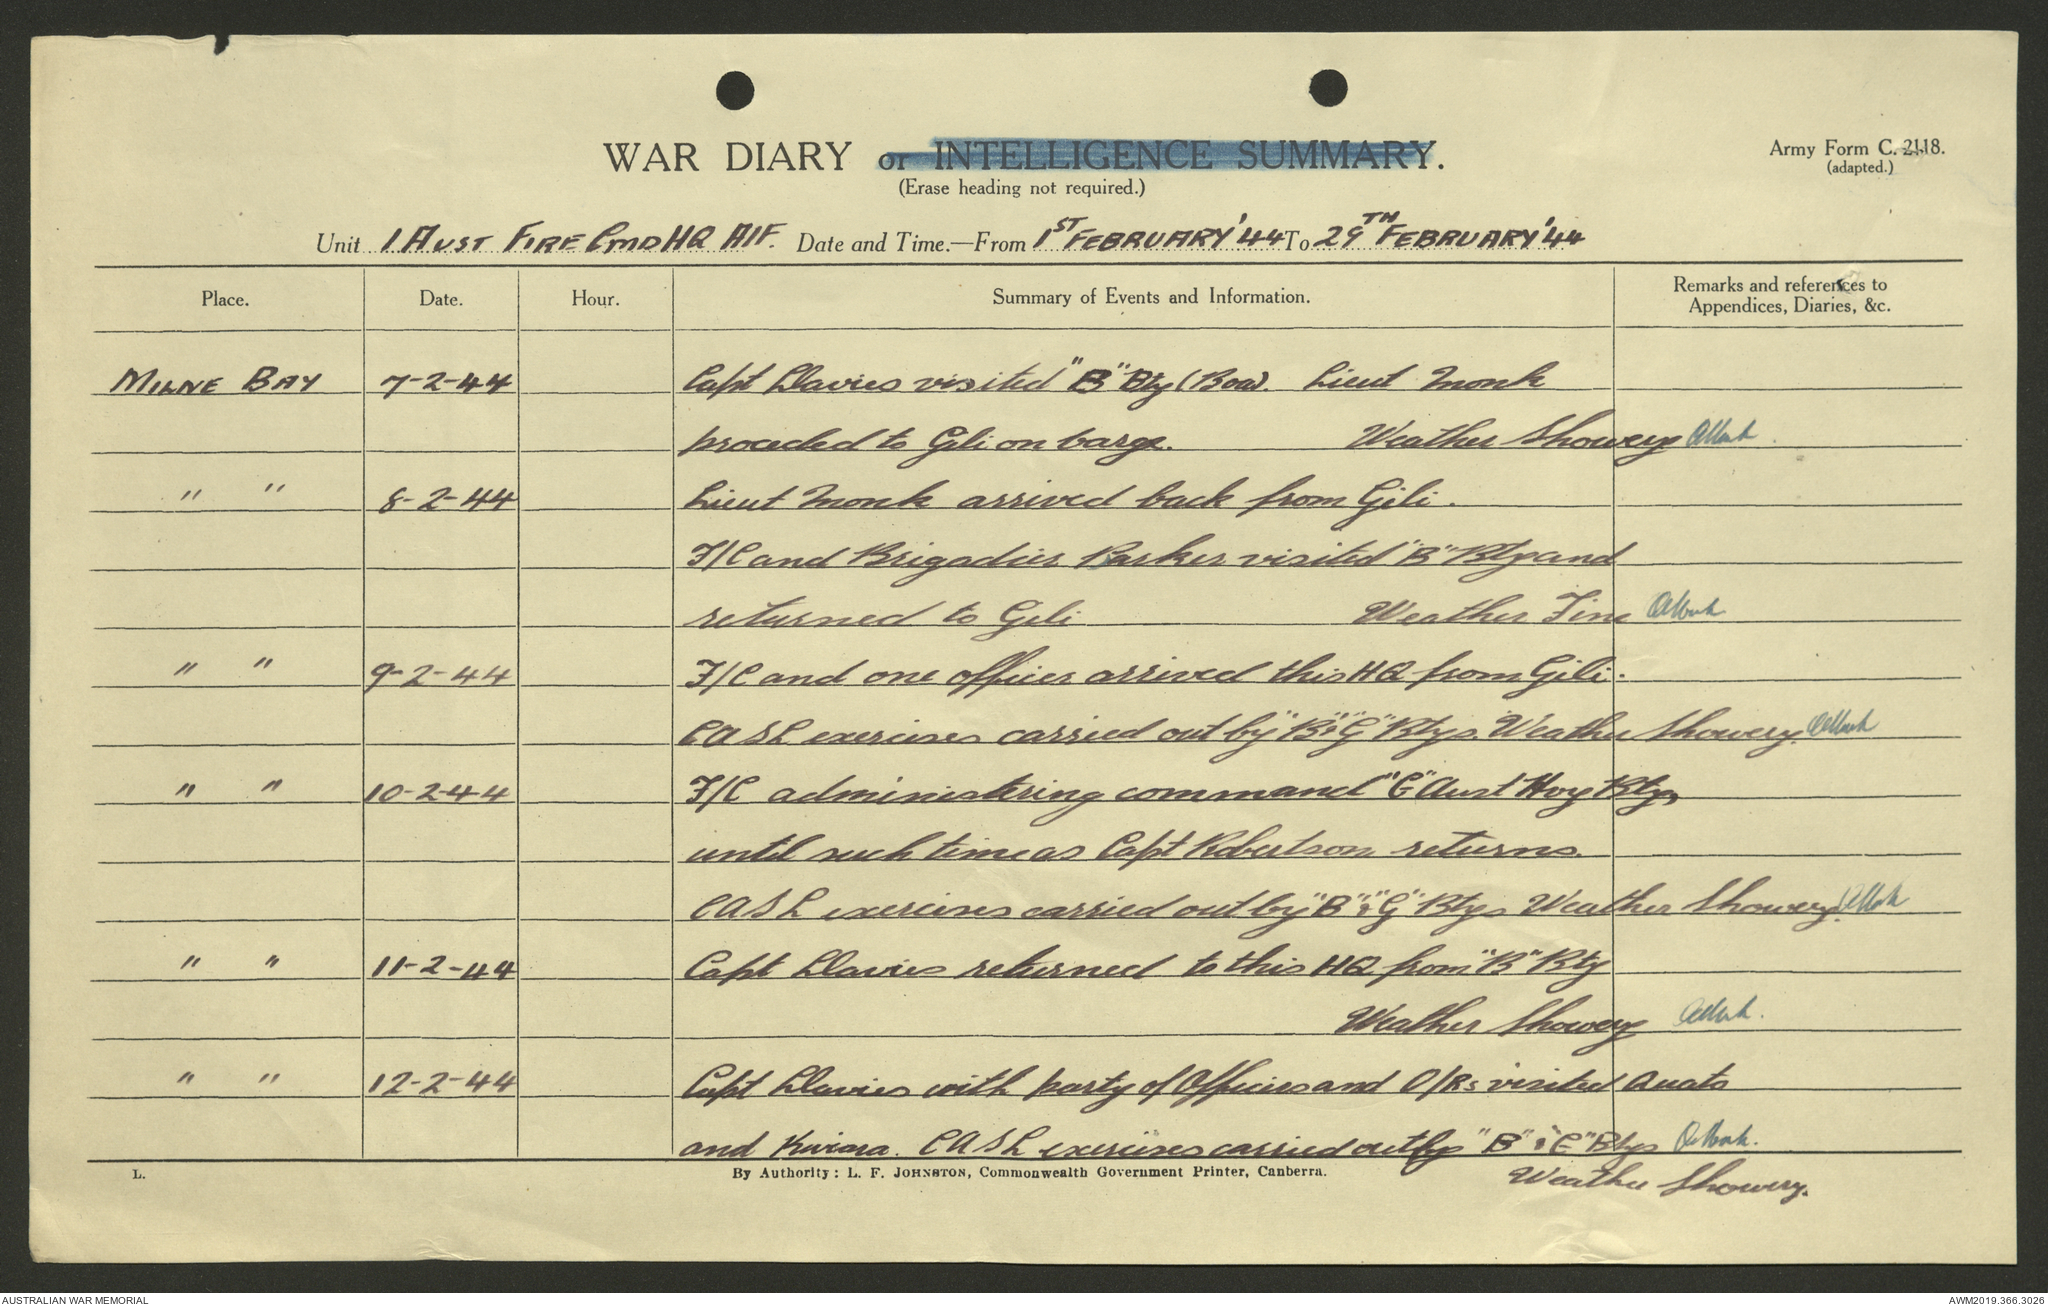 WAR DIARY or INTELLIGENCE SUMMARY.
(Erase heading not required.)
Army Form C. 2118.
(adapted.)
Unit 1 AUST FIRE CMD HQ AIF. Date and Time.—From 1ST FEBRUARY '44 To 29TH FEBRUARY '44
Place. Date. Hour. Summary of Events and Information. Remarks and references to
Appendices, Diaries, &c.
MILNE BAY 7-2-44 Capt Davies visited "B" Bty (Boa). Lieut Monk
proceded to Gili on barge. Weather Showery AMonk.
" " 8-2-44 Lieut Monk arrived back from Gili.
F/C and Brigadier Barker visited "B" Bty and
returned to Gili Weather Fine AMonk
" " 9-2-44 F/C and one officer arrived this HQ from Gili.
CASL exercises carried out by "B" & "G" Btys. Weather Showery. AMonk
" " 10-2-44 F/C administering command "G" Aust Hvy Bty,
until such time as Capt Robertson returns.
CASL exercises carried out by "B" & "G" Btys Weather Showery. AMonk
" " 11-2-44 Capt Davies returned to this HQ from "B" Bty
Weather Showery AMonk.
" " 12-2-44 Capt Davies with party of Officers and O/Rs visited
and CASL exercises carried out by "B" & Btys AMonk.
Weather Showery.
L. By Authority: L. F. JOHNSTON, Commonwealth Government Printer, Canberra.
AUSTRALIAN WAR MEMORIAL AWM2019.366.3026